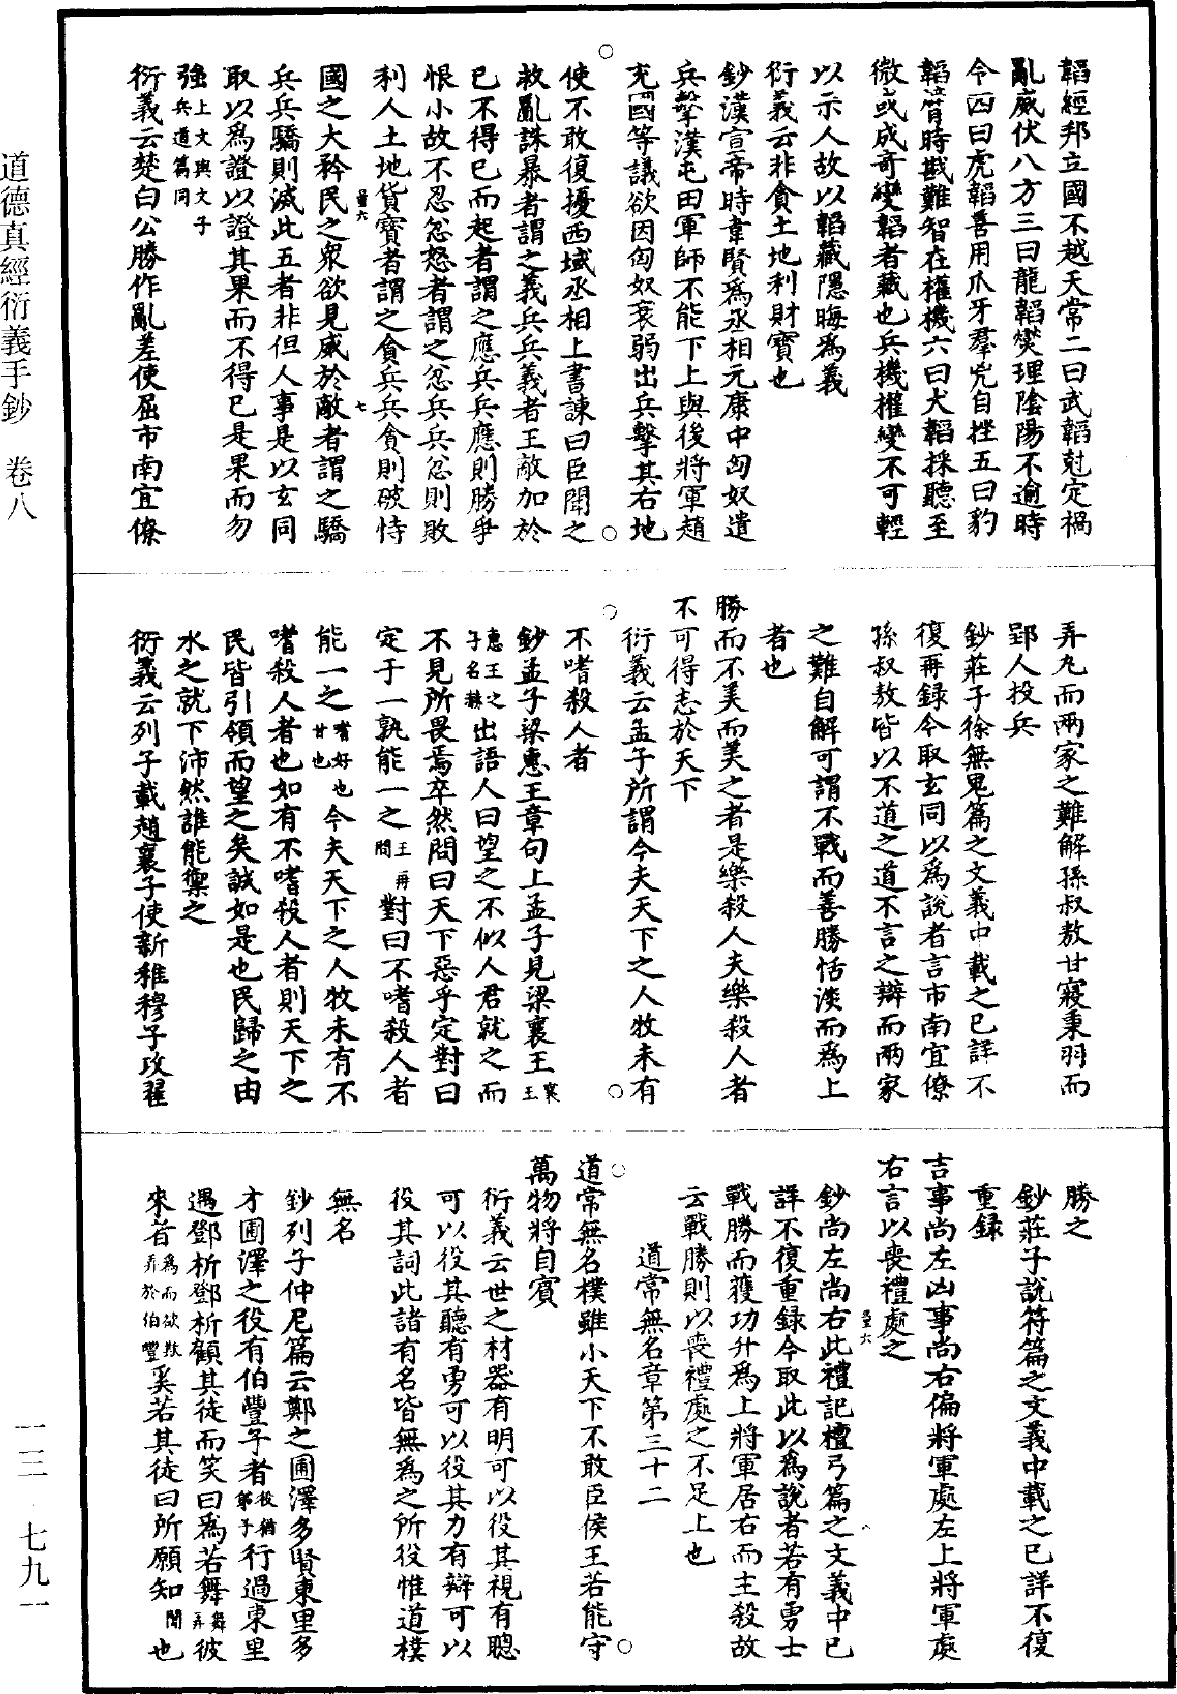 韜經邦立國不越天常二曰武韜尅定禍
亂威伏八方三曰龍韜爕理陰陽不逾時
令四曰虎韜善用爪牙羣兇自挫五曰豹
韜濟時戡難智在權機六曰犬韜採聽至
微或成奇變韜者藏也兵機權變不可輕
以示人故以韜藏隱晦為義
衍義云非貪土地利財寶也
鈔漢宣帝時韋賢為丞相元康中匈奴遣
兵擊漢屯田軍師不能下上與後將軍趙
充國等議欲因匈奴衰弱出兵擊其右地
使不敢復擾西域丞相上書諫曰臣聞之
救亂誅暴者謂之義兵兵義者王敵加於
已不得已而起者謂之應兵兵應則勝爭
恨小故不忍忿怒者謂之忿兵兵忿則敗
利人土地貨寶者謂之貪兵兵貪則破恃
國之大矜民之衆欲見威於敵者謂之驕
兵兵驕則滅此五者非但人事是以玄同
取以為證以證其果而不得已是果而勿
強上文與文子兵道篇同
衍義云楚白公勝作亂差使屈市南宜僚
弄丸而兩家之難解孫叔敖甘寢秉羽而
郢人投兵
鈔莊子徐無鬼篇之文義中載之已詳不
復再録今取玄同以為說者言市南宜僚
孫叔敖皆以不道之道不言之辯而兩家
之難自解可謂不戰而善勝恬淡而為上
者也
勝而不美而美之者是樂殺人夫樂殺人者
不可得志於天下
衍義云孟子所謂今夫天下之人牧未有
不嗜殺人者
鈔孟子梁惠王章句上孟子見梁襄王襄王
惠王之子名赫出語人曰望之不似人君就之而
不見所畏焉卒然問曰天下惡乎定對曰
定于一孰能一之王再問對曰不嗜殺人者
能一之嗜好也甘也今夫天下之人牧未有不
嗜殺人者也如有不嗜殺人者則天下之
民皆引領而望之矣誠如是也民歸之由
水之就下沛然誰能禦之
衍義云列子載趙襄子使新稚穆子攻翟
勝之
鈔莊子說符篇之文義中載之已詳不復
重録
吉事尚左凶事尚右偏將軍處左上將軍處
右言以喪禮處之
鈔尚左尚右此禮記檀弓篇之文義中已
詳不復重録今取此以為說者若有勇士
戰勝而獲功升為上將軍居右而主殺故
云戰勝則以喪禮處之不足上也
道常無名章第三十二
道常無名樸雖小天下不敢臣侯王若能守
萬物將自賓
衍義云世之材器有明可以役其視有聰
可以役其聽有勇可以役其力有辯可以
役其詞此諸有名皆無為之所役惟道樸
無名
鈔列子仲尼篇云鄭之圃澤多賢東里多
才圃澤之役有伯豐子者役猶弟子行過東里
遇鄧析鄧析顧其徒而笑曰為若舞舞弄彼
來者為而欲欺弄於伯豐奚若其徒曰所願知聞也
道德真經衍義手鈔　卷八
一三　七九一